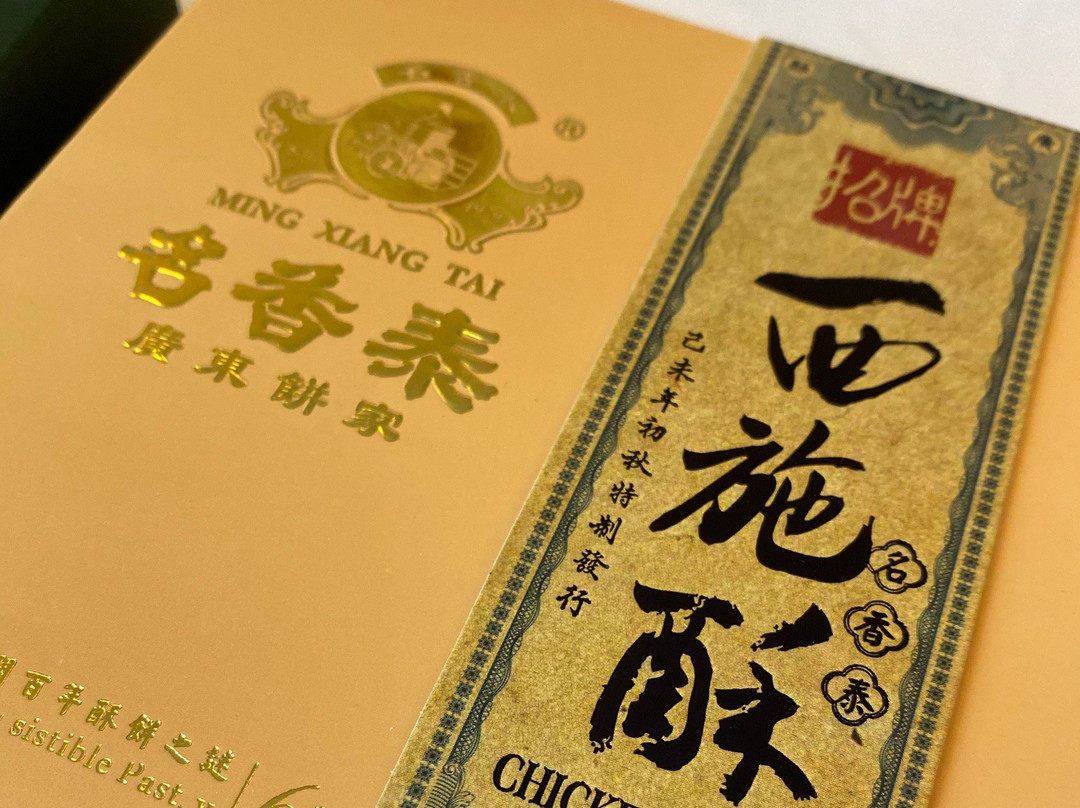 ®
MING XIANG TAI
名香泰
廣東餅家
百年酥餅之謎
sistible Past
招牌
西施酥
己未年初秋特制發行
名香泰
CHICK